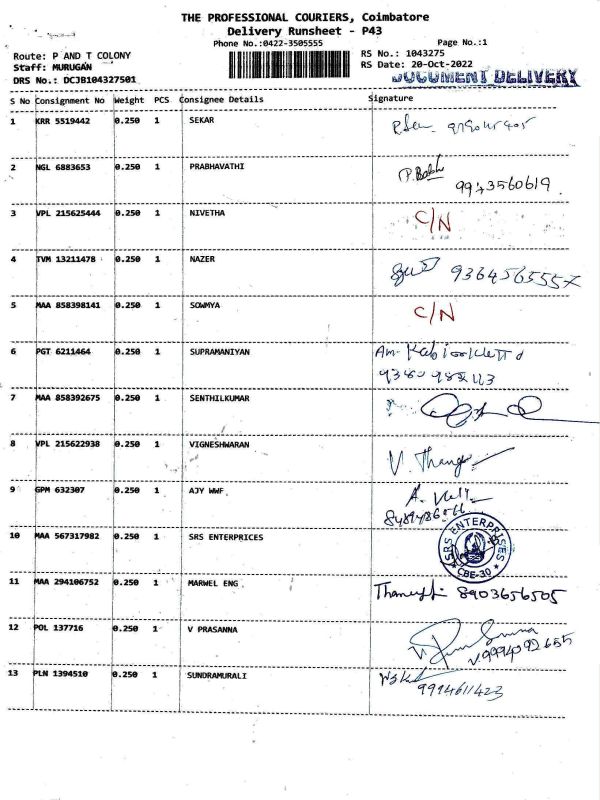 THE PROFESSIONAL COURIERS, Coimbatore
Delivery Runsheet - P43
Phone No.:0422-3505555 Page No.:1
Route: P AND T COLONY RS No.: 1043275
Staff: MURUGAN RS Date: 20-Oct-2022
DRS No.: DCJB104327501 DOCUMENT DELIVERY
S No Consignment No Weight PCS Consignee Details Signature
1 KRR 5519442 0.250 1 SEKAR
2 NGL 6883653 0.250 1 PRABHAVATHI
9943560619
3 VPL 215625444 0.250 1 NIVETHA C/N
4 TVM 13211478 0.250 1 NAZER
5 MAA 858398141 0.250 1 SOWMYA C/N
6 PGT 6211464 0.250 1 SUPRAMANIYAN
7 MAA 858392675 0.250 1 SENTHILKUMAR
8 VPL 215622938 0.250 1 VIGNESHWARAN V. Thang
9 GPM 632307 0.250 1 AJY WWF
10 MAA 567317982 0.250 1 SRS ENTERPRICES SRS ENTERPRISES CBE-30
11 MAA 294106752 0.250 1 MARWEL ENG 8903656505
12 POL 137716 0.250 1 V PRASANNA
9994092655
13 PLN 1394510 0.250 1 SUNDRAMURALI
9994611423